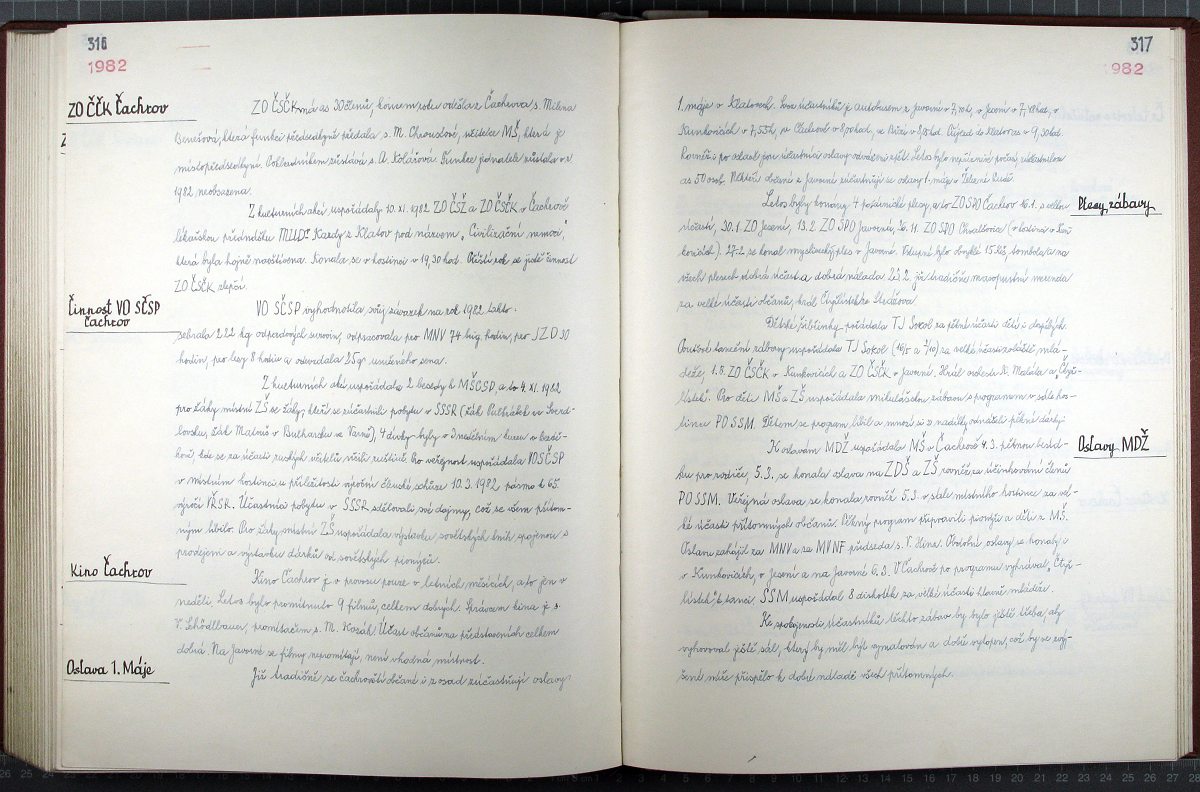 316
1982
ZO ČČK Čachrov
ZO ČSČK má as 30 členů, koncem roku odešla z Čachrova s. Milena
Benešová, která funkci předsedkyně předala s. M. Chroustové, učitelce MŠ, která je
místopředsedkyní. Pokladníkem zůstává s. A. Kolářová. Funkce jednatele zůstala v r.
1982 neobsazena.
Z kulturních akcí uspořádaly 10. XI. 1982 ZO ČSŽ a ZO ČSČK v Čachrově
lékařskou přednášku MUDr Kardy z Klatov pod názvem „Civilizační nemoci“,
která byla hojně navštívena. Konala se v hostinci v 19,30 hod. Příští rok se jistě činnost
ZO ČSČK zlepší.
Činnost VO SČSP
Čachrov
VO SČSP vyhodnotila svůj závazek na rok 1982 takto:
sebrala 222 kg odpadových surovin, odpracovala pro MNV 74 brig. hodin, pro JZD 30
hodin, pro lesy 8 hodin a odevzdala 35 q usušeného sena.
Z kulturních akcí uspořádala 2 besedy k MŠCSP, a to 4. XI. 1982
pro žáky místní ZŠ se žáky, kteří se zúčastnili pobytu v SSSR (žák Pulkrábek ve Sverd-
lovsku, žák Matouš v Bulharsku ve Varně), 4 dívky byly v 3 nedělním kurzu v
kde se za účasti ruských učitelů učili ruštině. Pro veřejnost uspořádala VO SČSP
v místním hostinci u příležitosti výroční členské schůze 10. 3. 1982 pásmo k 65.
výročí VŘSR. Účastníci pobytu v SSSR sdělovali své dojmy, což se všem přítom-
ným líbilo. Pro žáky místní ZŠ uspořádala výstavku sovětských knih spojenou s
prodejem a výstavku dárků od sovětských pionýrů.
Kino Čachrov
Kino Čachrov je v provozu pouze v letních měsících, a to jen v
neděli. Letos bylo promítnuto 9 filmů, celkem dobrých. Správcem kina je s.
V. Schödlbauer, promítačem s. M. Kozák. Účast občanů na představeních celkem
dobrá. Na Javorné se filmy nepromítají, není vhodná místnost.
Oslava 1. Máje
Již tradičně se čachrovští občané i z osad zúčastňují oslavy
317
1982
1. máje v Klatovech. Svoz účastníků je autobusem z Javorné v 7, hod, v Jesení v 7, hod, v
Kunkovicích v 7,55 h, v Chvalšově v 8 hod, ve Březí v 8, hod. Odjezd do Klatov v 9,30 hod.
Rovněž po oslavě jsou účastníci oslavy odváženi zpět. Letos bylo nepříznivé počasí, zúčastnilo
as 50 osob. Někteří občané z Javorné zúčastňují se oslavy 1. máje v Železné Rudě.
Plesy, zábavy
Letos byly konány 4 požárnické plesy, a to ZO SPO Čachrov 16. 1. s velkou
účastí, 30. 1. ZO Jesení, 13. 2. ZO SPO Javorná, 20. 11. ZO SPO Chvalšovice (v hostinci v Kun-
kovicích). 27. 2. se konal myslivecký ples v Javorné. Vstupné bylo obvykle 15 Kčs, tombola, na
všech plesech dobrá účast a dobrá nálada. Též 2. již tradičně masopustní merenda
za velké účasti občanů, hrál Čtyřlístek ze Strážova.
Dětské šibřinky pořádala TJ Sokol za pěkné účasti dětí i dospělých.
Pouťové taneční zábavy uspořádala TJ Sokol (16/5 a 7/10) za velké účasti zvláště mlá-
deže, 1. 8. ZO ČSČK v Kunkovicích a ZO ČSČK v Javorné. Hrál orchestr R. Maláta a „Čtyř-
lístek“. Pro děti MŠ a ZŠ uspořádala mikulášskou zábavu s programem v sále ho-
stince PO SSM. Dětem se program líbil a mnozí si z nadílky odnášeli pěkné dárky.
Oslavy MDŽ
K oslavám MDŽ uspořádala MŠ v Čachrově 4. 3. pěknou besíd-
ku pro rodiče, 5. 3. se konala oslava na ZDŠ a ZŠ rovněž za účinkování členů
PO SSM. Veřejná oslava se konala rovněž 5. 3. v sále místního hostince za vel-
ké účasti přítomných občanů. Pěkný program připravili pionýři a děti z MŠ.
Oslavu zahájil za MNV a za MVNF předseda s. V. Hina. Obdobné oslavy se konaly i
v Kunkovicích, v Jesení a na Javorné 6. 3. V Čachrově po programu vyhrával „Čtyř-
lístek“ k tanci, SSM uspořádal 8 diskoték za velké účasti hlavně mládeže.
Ke spokojenosti účastníků těchto zábav by bylo ještě třeba, aby
vyhovoval ještě sál, který by měl být vymalován a dobře vytopen, což by se zvý-
šené míře přispělo k dobré náladě všech přítomných.